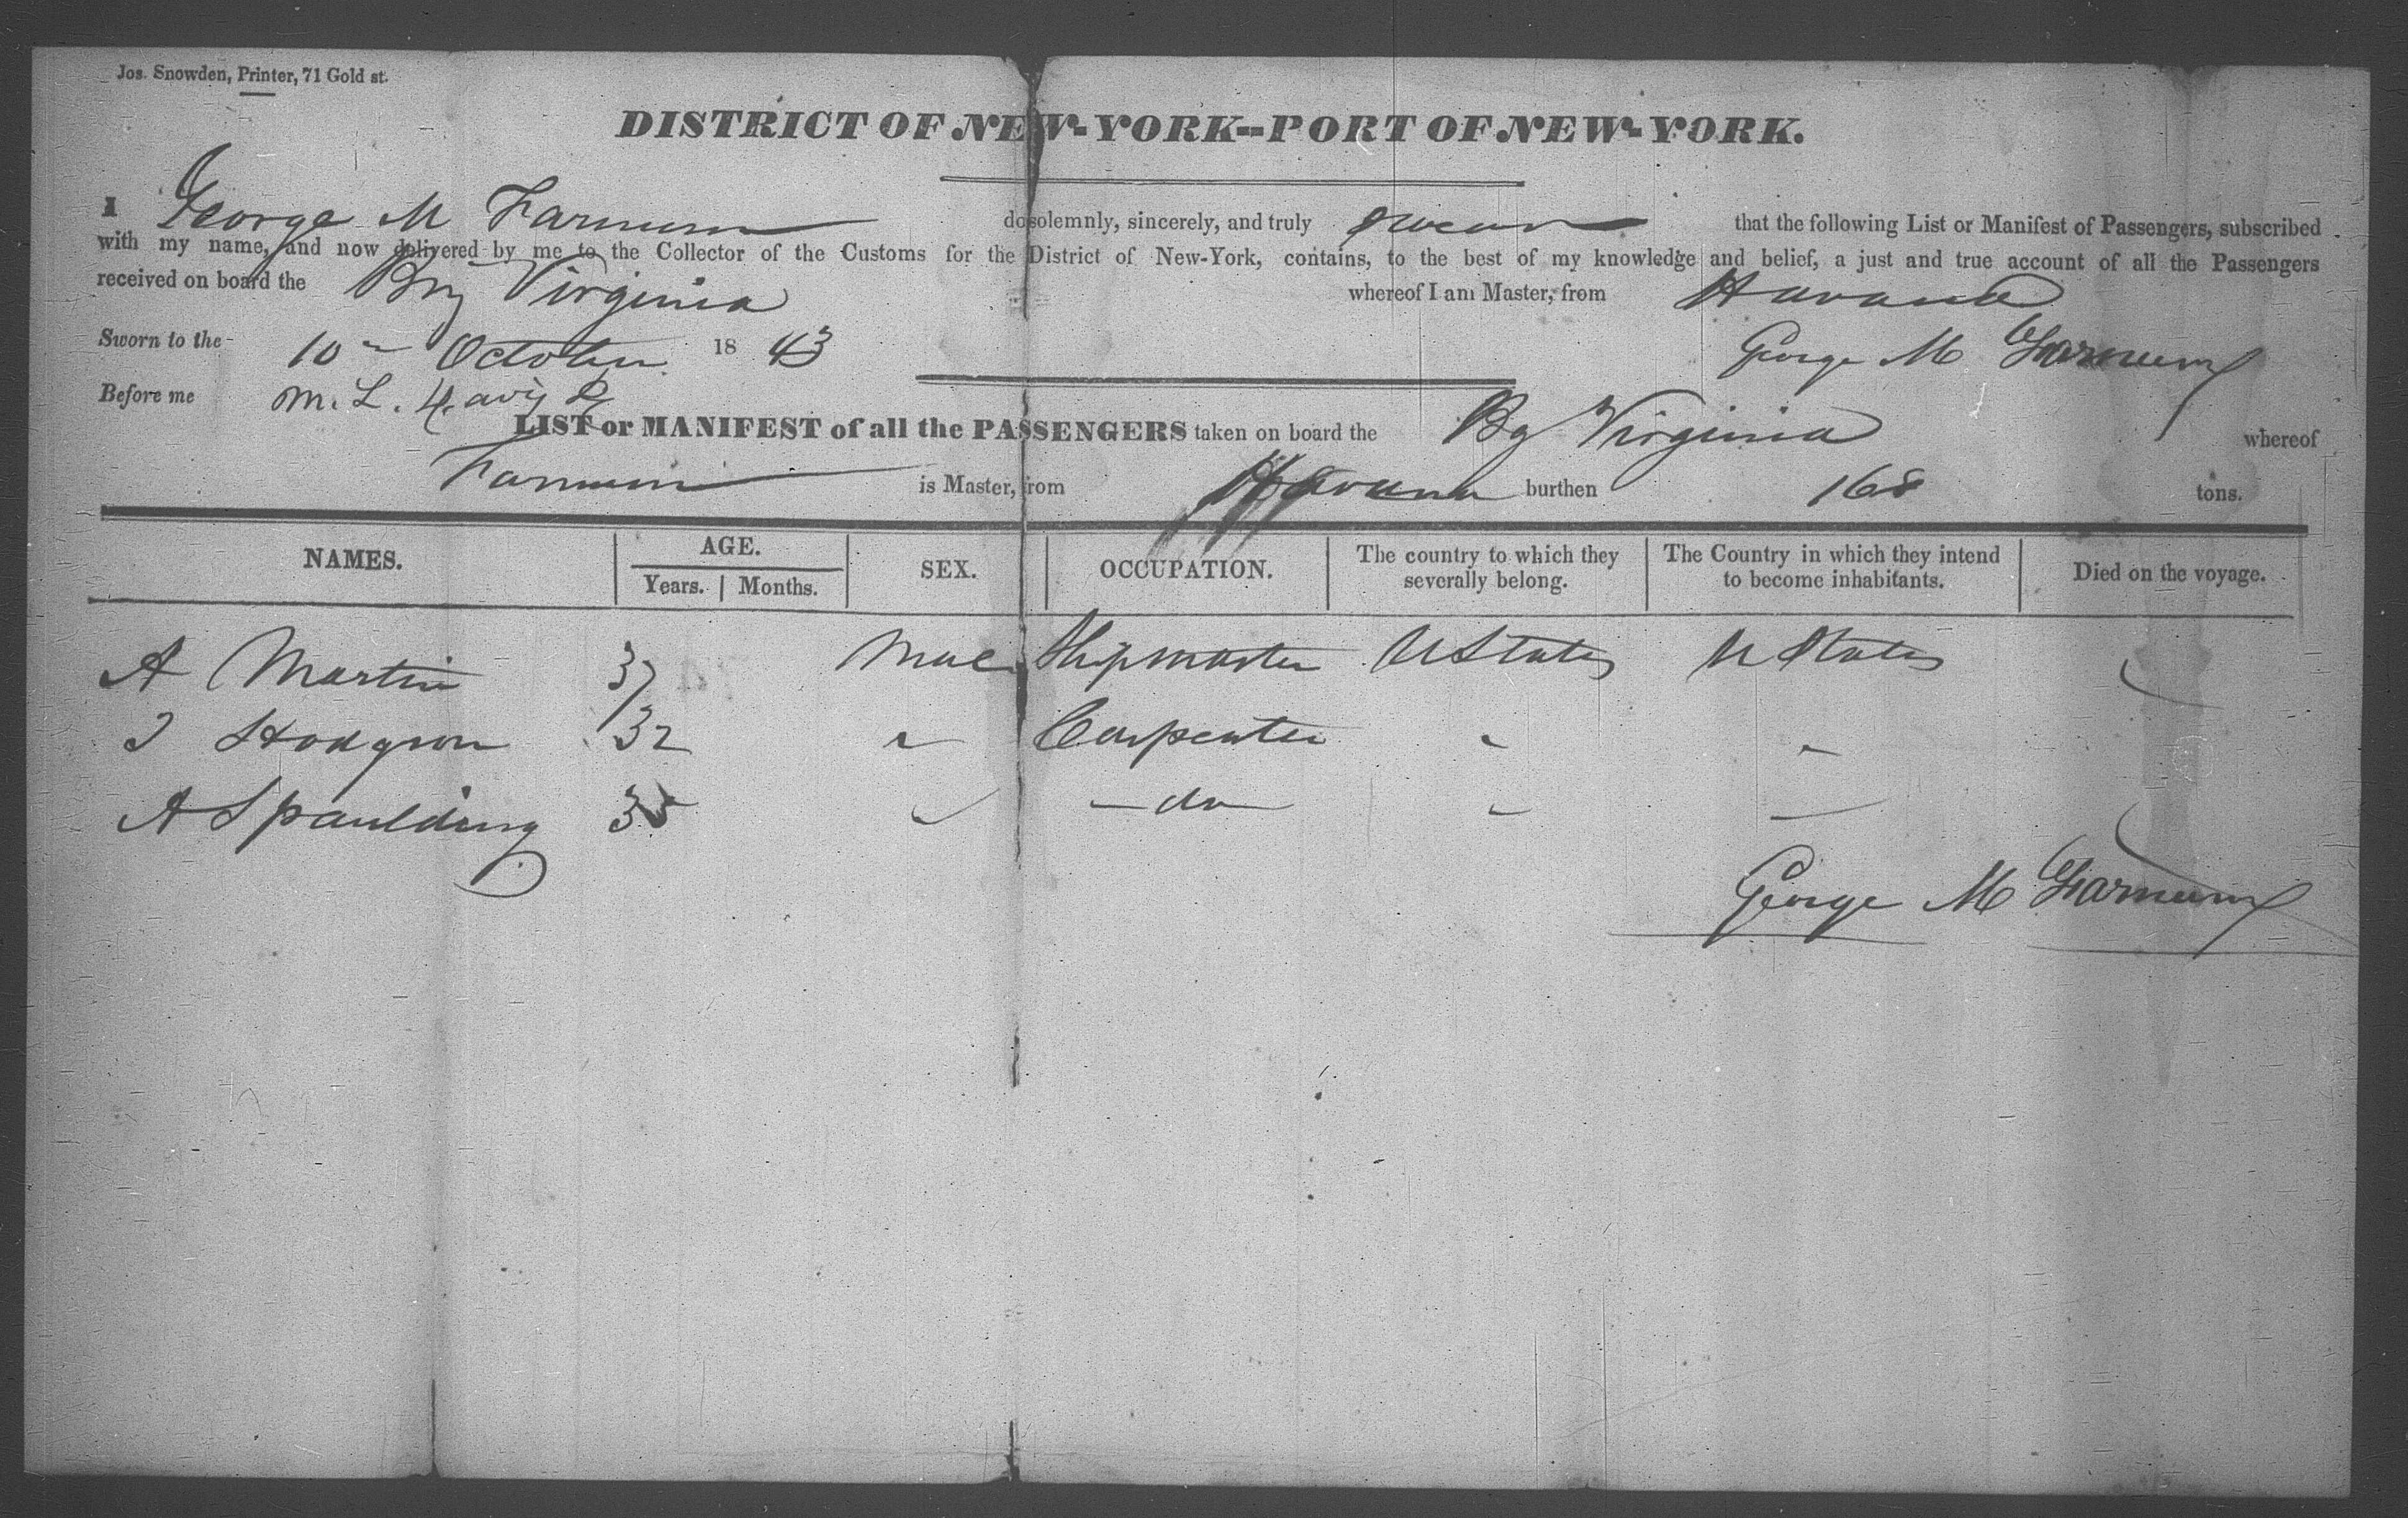 Jos. Snowden, Printer, 71 Gold st.
DISTRICT OF NEW-YORK--PORT OF NEW-YORK.
I George M Farnum do solemnly, sincerely, and truly swear that the following List or Manifest of Passengers, subscribed
with my name, and now delivered by me to the Collector of the Customs for the District of New-York, contains, to the best of my knowledge and belief, a just and true account of all the Passengers
received on board the Brig Virginia whereof I am Master, from Havana
Sworn to the 10 October 1843 George M Farnum
Before me M. L. Davis
LIST or MANIFEST of all the PASSENGERS taken on board the Bg Virginia whereof
Farnum is Master, from Havana burthen 168 tons.
NAMES. AGE. Years. Months. SEX. OCCUPATION. The country to which they severally belong. The Country in which they intend to become inhabitants. Died on the voyage.
A Martin 37 Male Shipmaster U States U States
J Hodgson 32 " Carpenter " "
A Spaulding 35 " do " "
George M Farnum